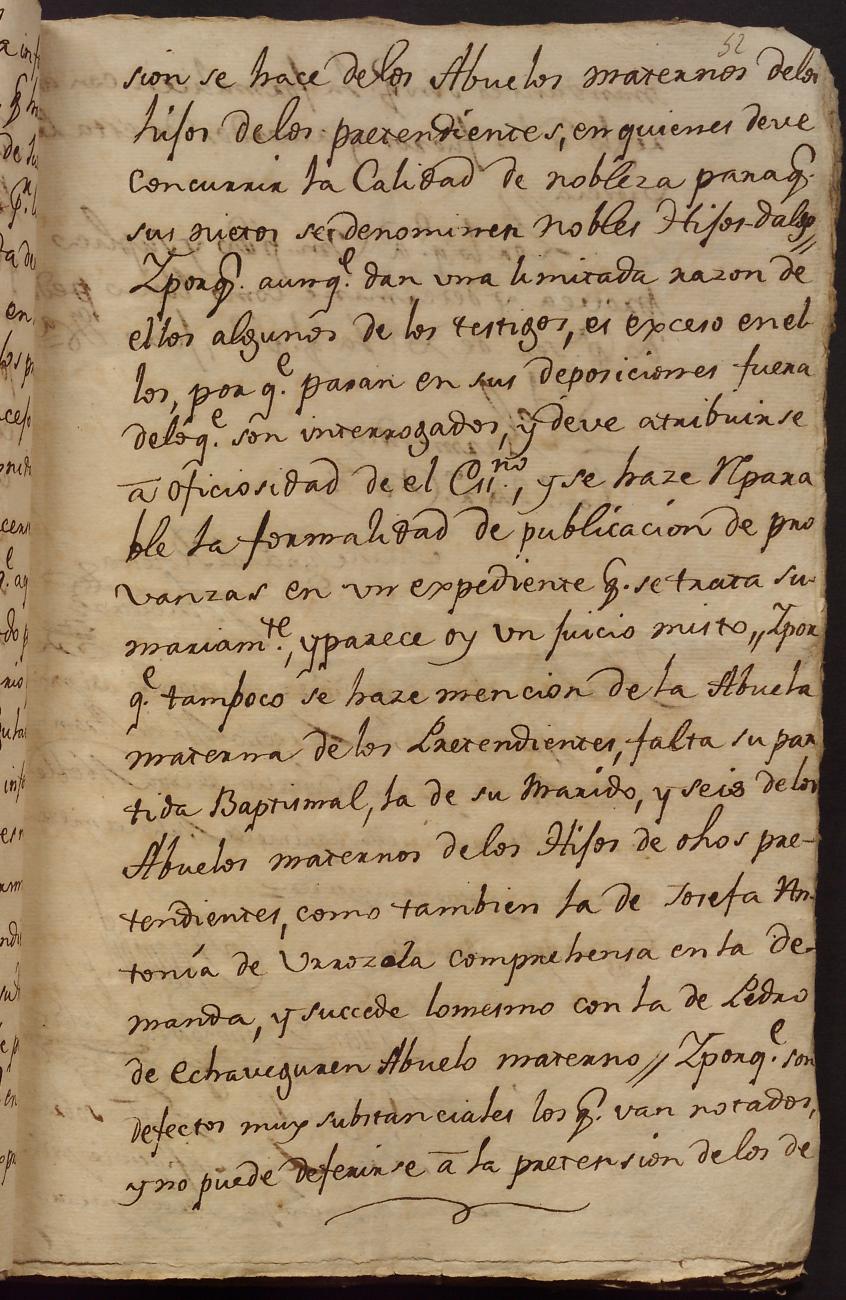 52
sion se hace delos Abuelos maternos delos
hijos delos pretendientes, en quienes deve
concurrir la Calidad de nobleza paraq.
sus nietos se denominen nobles Hijos-dalgo//
Yporq. aunq.e dan una limitada razon de
ellos algunos de los testigos, es exceso en el-
los, porq.e pasan en sus deposiciones fuera
deloq.e son interrogados, y deve atribuirse
a oficiosidad de el Es.no, y se haze Npara
ble la formalidad de publicacion de pro
vanzas en un expediente q. se trata su-
mariam.te, yparece oy un juicio misto,, Ypor
q.e tampoco se haze mencion de la Abuela
materna de los Pretendientes, falta su par
tida Baptismal, la de su Marido, y seis delos
Abuelos maternos delos Hijos de dhos pre-
tendientes, como tambien la de Josefa An-
tonía de Urrozola comprehensa en la de-
manda, y succede lomesmo con la de Pedro
de Echaveguren Abuelo materno // Yporq.e son
defectos muy substanciales los q. van notados,
y no puede deferirse a la pretension delos de